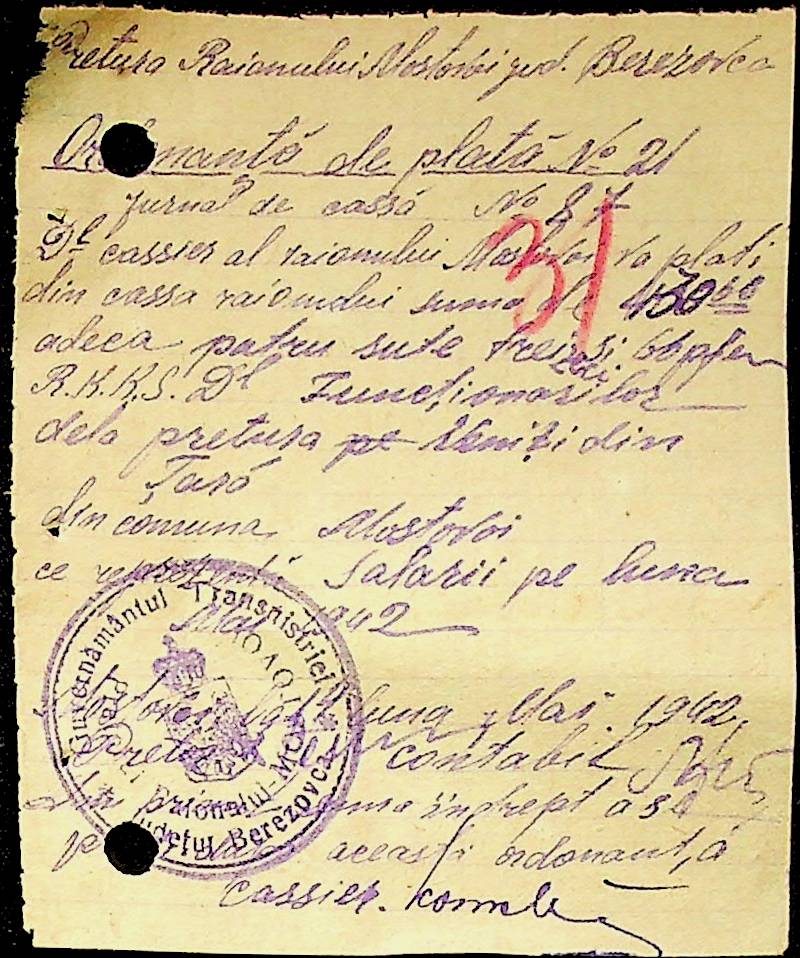 Pretura Raionului Mostovoi jud. Berezovca
Ordonantă de plată No 21
Jurnal de cassă No 87
31
Dl cassier al raionului Mostovoi va plati
din cassa raionului suma de 430 60
adeca patru sute treizeci si 60 pfen
R.K.K.S. Dl Funcționarilor
dela pretura pe Veniți din
Țară
din comuna Mostovoi
ce reprezintă Salarii pe luna
Mai 1942
Mostovoi luna Mai 1942
Pretor Contabil
Am primit suma îndrept a se
această ordonanță
Cassier.
Guvernământul Transnistriei
Raionului
Județul Berezovca